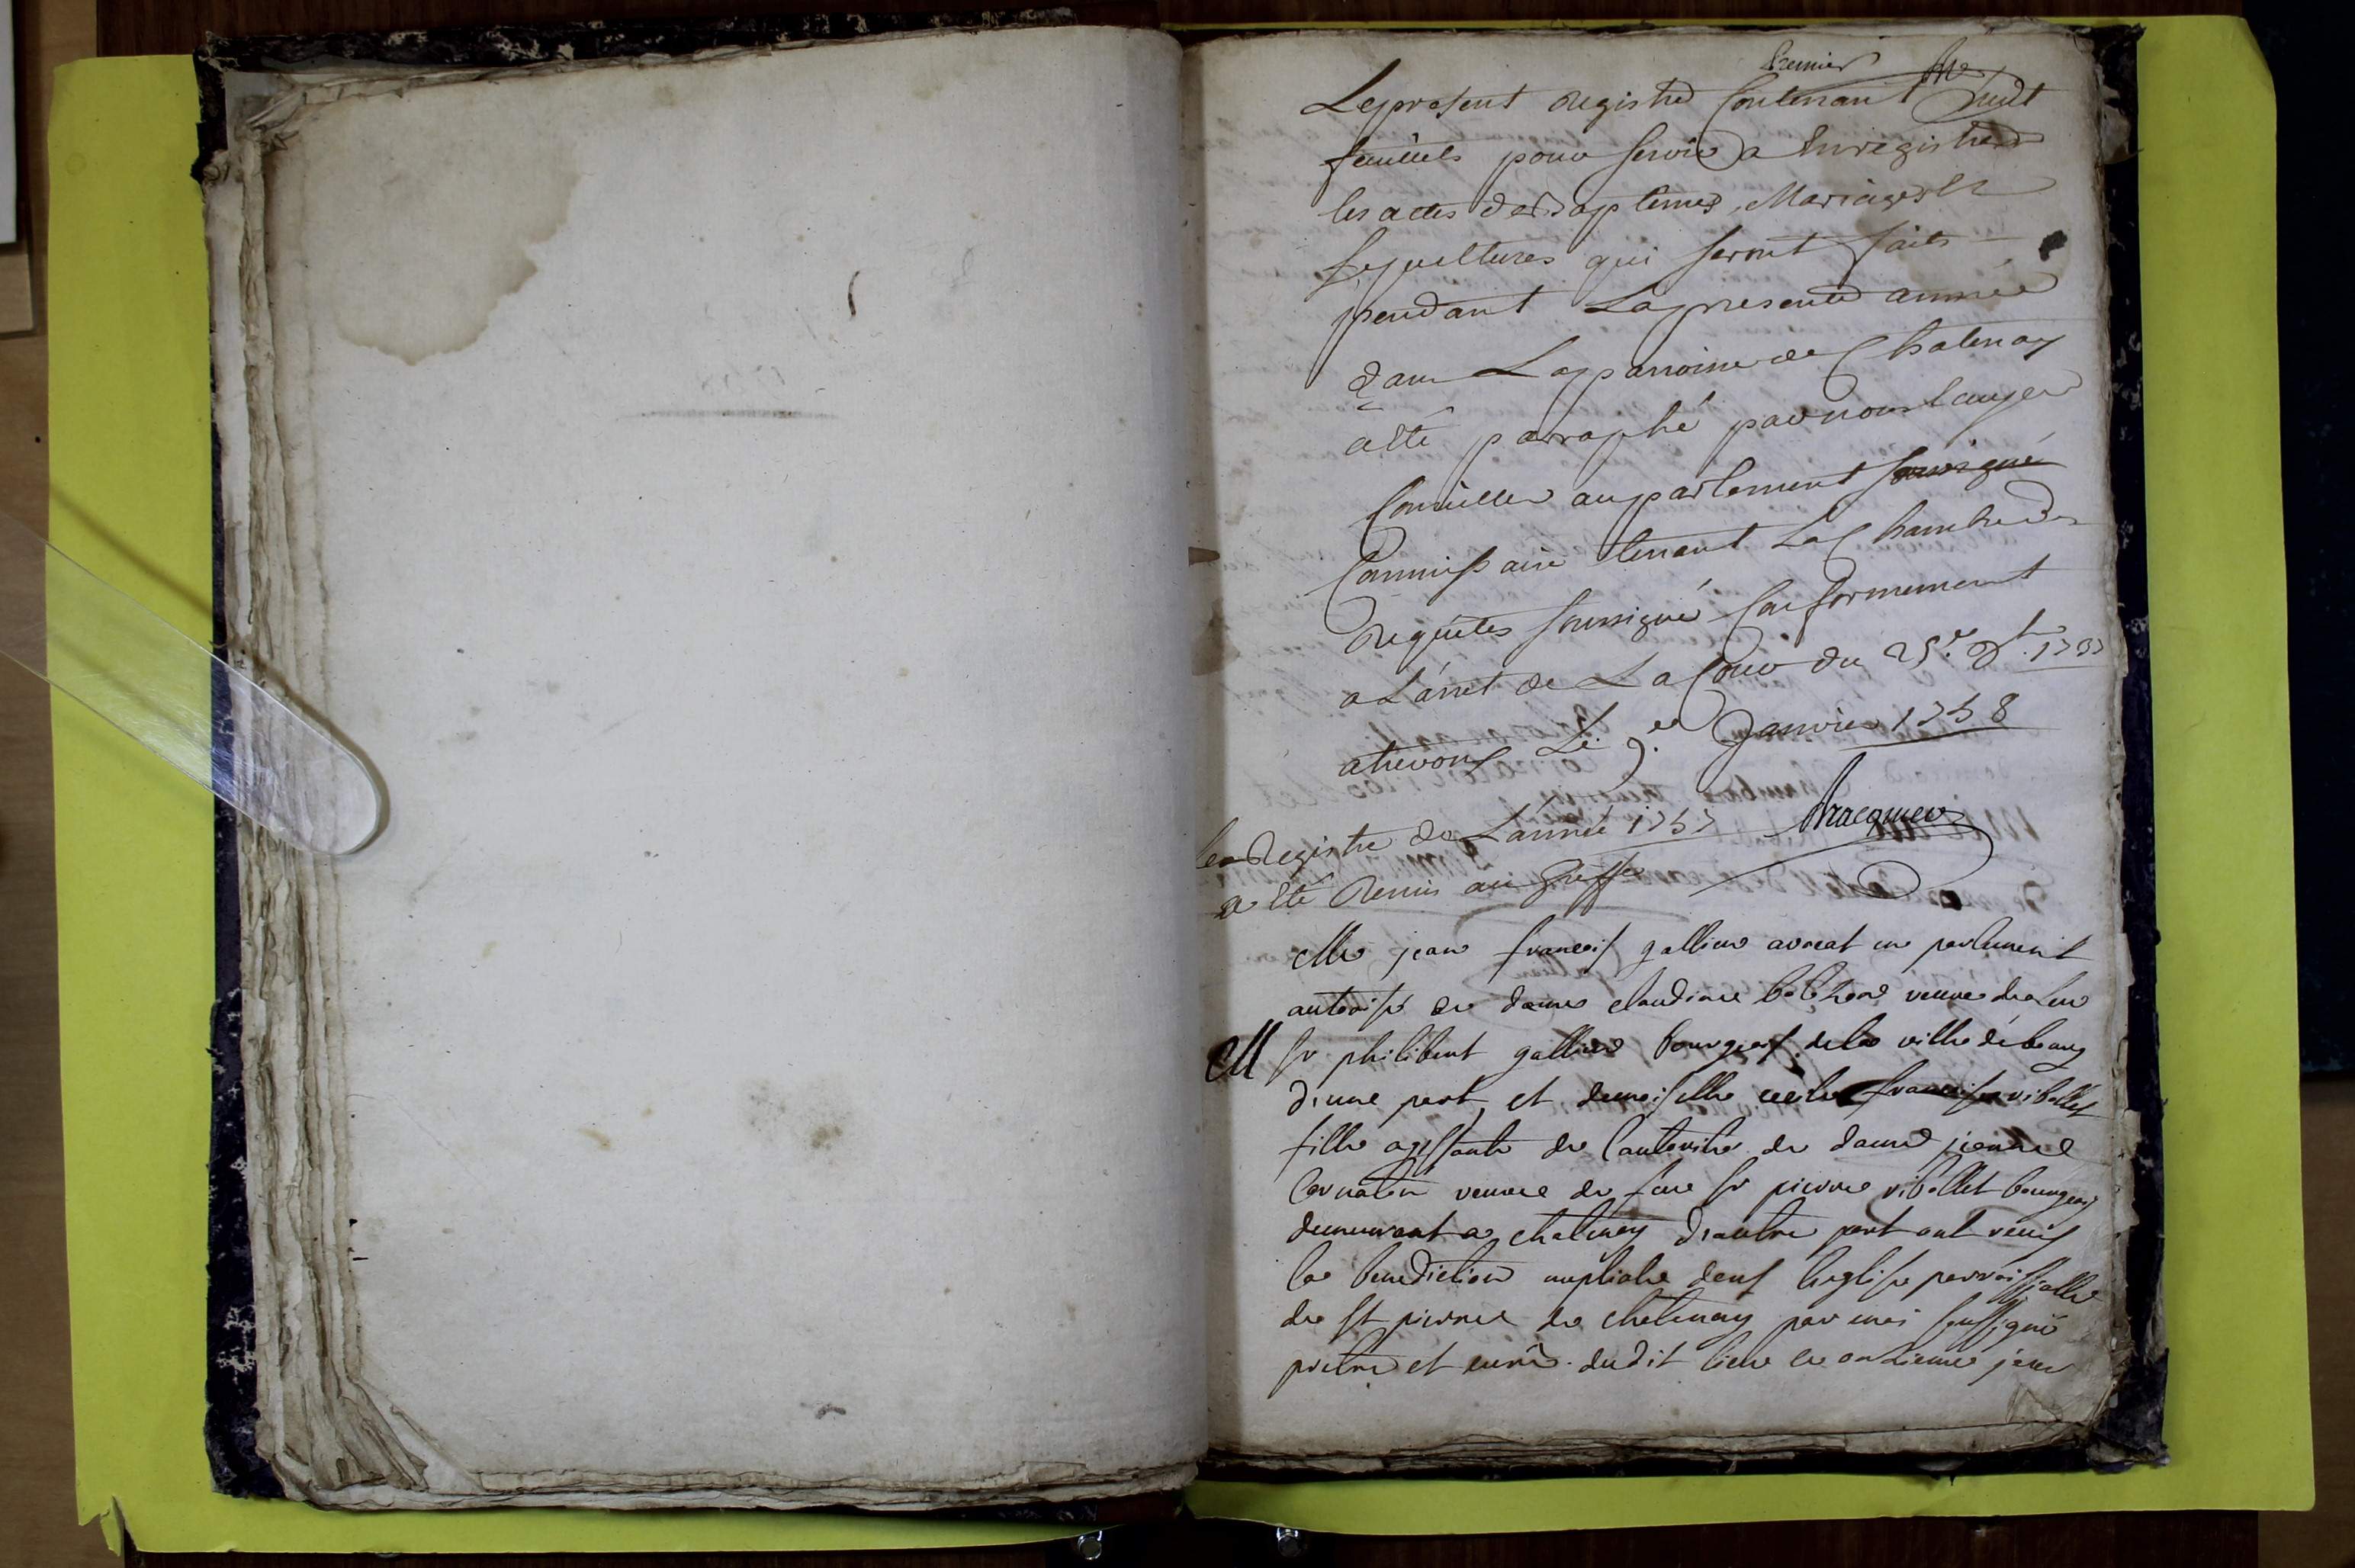 Premier
Le present Registre Contenant huit
feuillets pour servir a Enregistrer
les actes de Baptemes, Mariages et
Sepultures qui seront faits
pendant La presente année
dans La parroisse de Chatenay
a êté parraphé par nous
Conseiller au parlement soussigné
Commissaire tenant La Chambre des
Requêtes soussigné Conformement
a L'arret de La Cour du
a trevoux Le Janvier 1758
le Registre de L'année 1757
a êté Remis au Greffe
Me jean françois gallien avocat en parlement
autorisé de dame claudine veuve de feu
M sr philibert gallien bourgeois de la ville de beaug
d'une part, et demoiselle cecile françoise ribollet
fille agissante de l'autorité de dame jeanne
veuve de feu sr pierre ribollet bourgeois
demeurant a chatenay d'autre part ont reçuë
la benediction nuptiale dans l'eglise parroissialle
de st pierre de chatenay par moi soussigné
prêtre et curé dudit lieu le onzieme jour